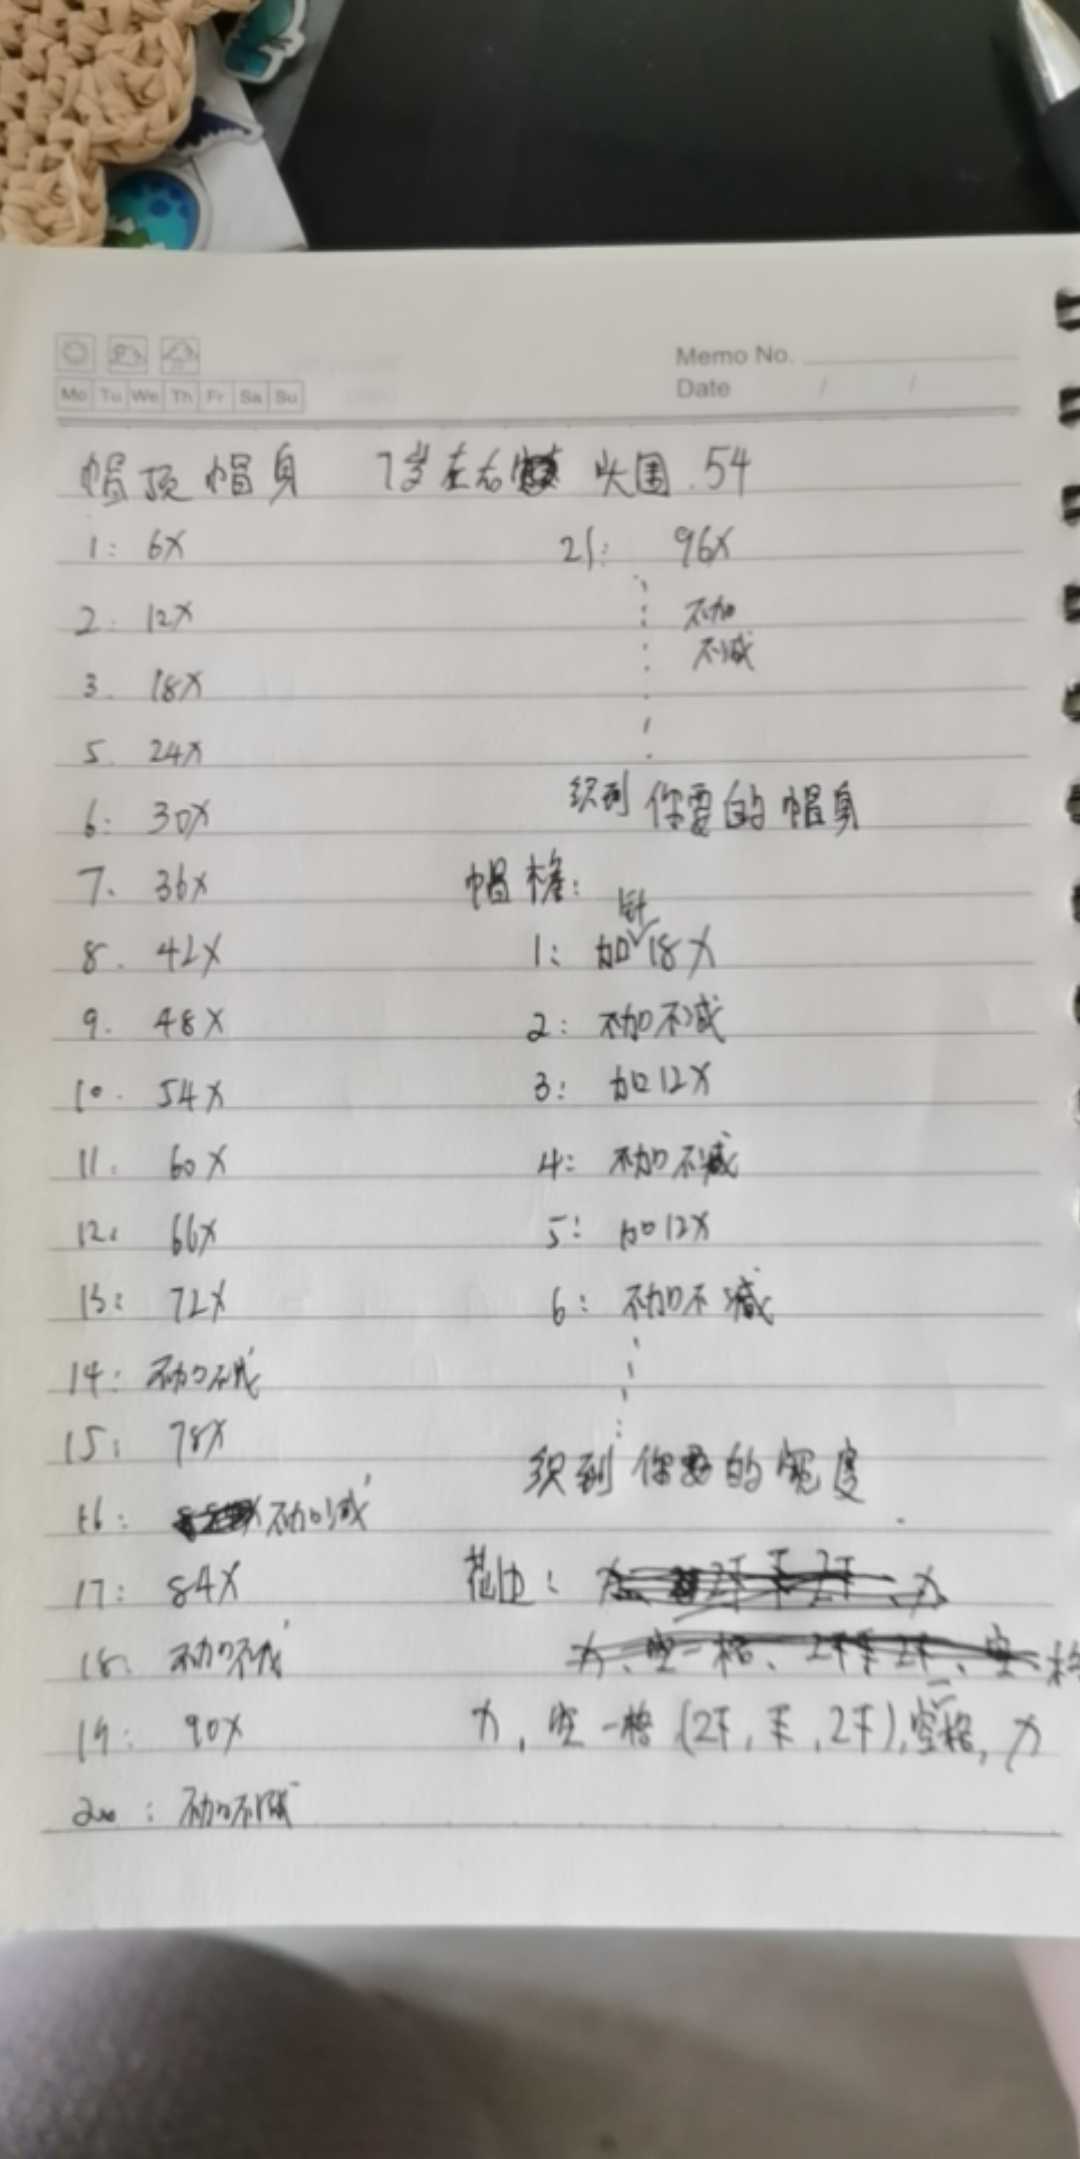 Memo No.
Mo Tu We Th Fr Sa Su
Date / /
帽顶 帽身 7岁左右 头围.54
1: 6X
2: 12X
3. 18X
5. 24X
6: 30X
7. 36X
8. 42X
9. 48X
10. 54X
11. 60X
12: 66X
13: 72X
14: 不加不减
15: 78X
16: 不加不减
17: 84X
18: 不加不减
19: 90X
20: 不加不减
21: 96X
不加
不减
织到你要的帽身
帽檐:
1: 加针18X
2: 不加不减
3: 加12X
4: 不加不减
5: 加12X
6: 不加不减
织到你要的宽度
花边:
X, 空一格(2F, 手, 2F), 空一格, X